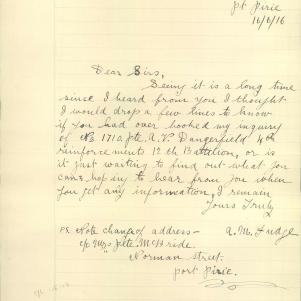 pt Pirie
16/6/16
Dear Sirs,
Seeing it is a long time
since I heard from you I thought
I would drop a few lines to know
if you had over looked my inquiery
of No 1710 pte A. V. Dangerfield 4th
reinforcements 12th Battalion, or is
it just waiting to find out what you
can, hoping to hear from you when
you get any information, I remain
Yours Truly
A. M. Fudge
P.S. Note change of address -
c/o Mrs Pete McBride.
Norman Street.
port Pirie.